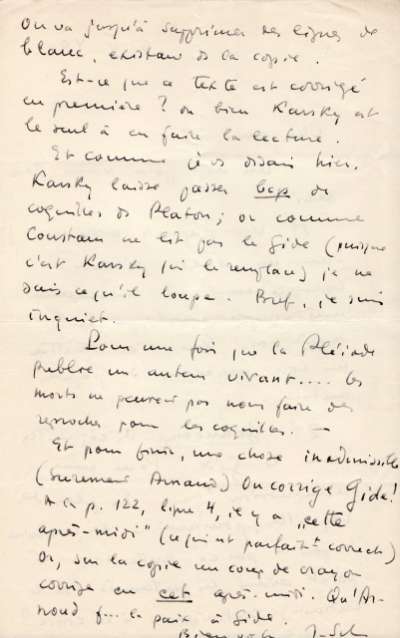 On va jusqu'à supprimer des lignes de
blanc, existant ds la copie.
Est-ce que ce texte est corrigé
en première ? ou bien Kansky est
le seul à en faire la lecture.
Et comme je vs disais hier,
Kansky laisse passer bcp de
coquilles ds Platon ; or comme
Constans ne lit pas le Gide (puisque
c'est Kansky qui le remplace) je ne
sais ce qu'il loupe. Bref, je suis
inquiet.
Pour une fois que la Pléiade
publie un auteur vivant.... les
morts ne peuvent pas nous faire des
reproches pour les coquilles. —
Et pour finir, une chose inadmissible
(Surement Arnaud) On corrige Gide !
A la p. 122, ligne 4, il y a „cette
après-midi" (ce qui est parfait^t correct)
Or, sur la copie un coup de crayon
corrige en cet après-midi. Qu'Ar-
naud f... la paix à Gide.
Bien votre